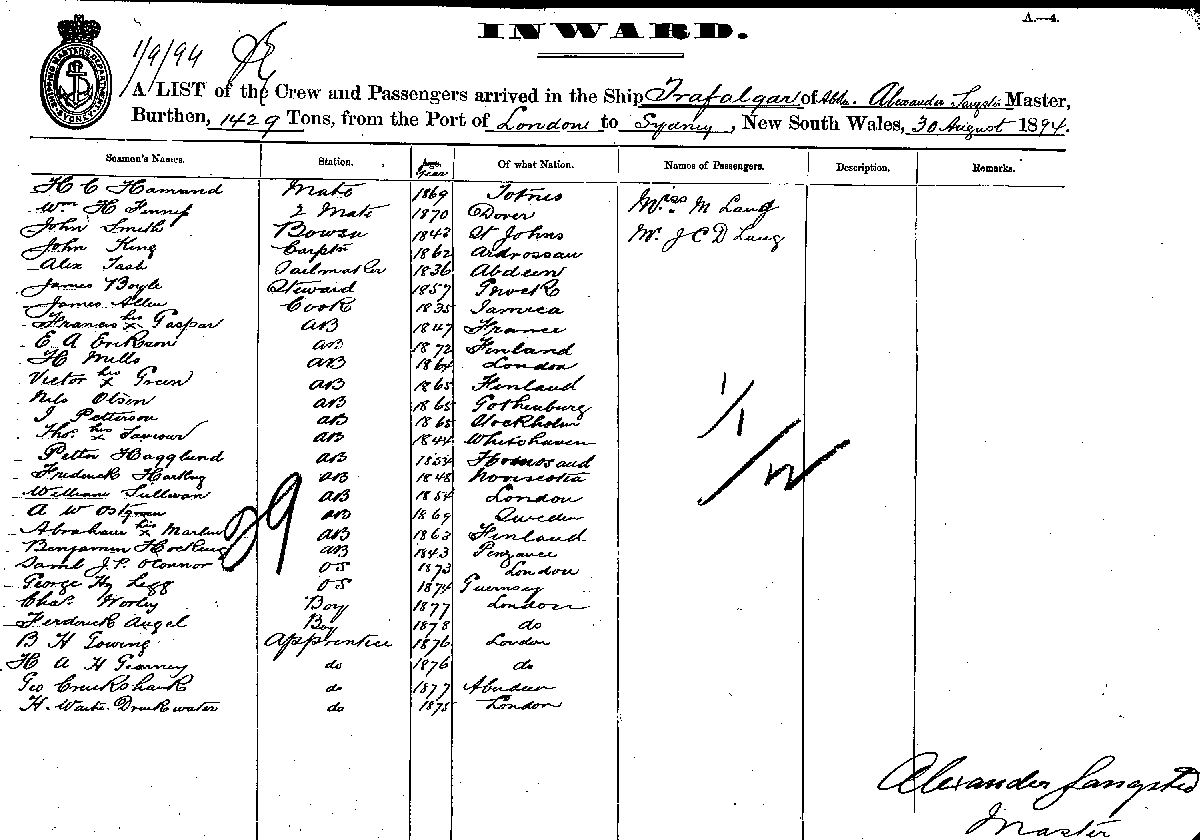 A.—4.
INWARD.
1/9/94
SHIPPING MASTERS DEPARTMENT SYDNEY
A LIST of the Crew and Passengers arrived in the Ship Trafalgar of Abdn. Alexander Langster Master,
Burthen, 1429 Tons, from the Port of London to Sydney, New South Wales, 30 August 1894.
Seamen's Names. Station. Age. Year Of what Nation. Names of Passengers. Description. Remarks.
H C Hamand Mate 1869 Totnes
Wm H 2 Mate 1870 Dover Miss M Laug
John Smith Bowsn 1843 St Johns Mr J C D Laug
John King Carptr 1862 Ardrossan
Alex Tash Sailmaker 1836 Abdeen
James Boyle Steward 1857
James Allen Cook 1835 Jamica
Francis his x Gaspar AB 1847 France
E A Erikson AB 1872 Finland
H Mills AB 1864 London
Victor his x Green AB 1865 Finland
Nils Olsen AB 1865 Gothenburg
J Petterson AB 1865 Stockholm
Thos his x Saviour AB 1844 Whitehaven
Petter Hagglund AB 1854
Frederick AB 1848 Novascotia
William Sullivan AB 1854 London
A W Ostgren AB 1869 Sweden
Abraham his x Martin AB 1863 Finland
Benjamin Hocking AB 1843 Penzance
Saml J. P. O'Connor OS 1873 London
George Hy Legg OS 1874 Guernsey
Chas. Worley Boy 1877 London
Frederick Angel Boy 1878 do
B H Towing Apprentice 1876 London
H A H do 1876 do
Geo Cruickshank do 1877 Aberdeen
H. Drinkwater do 1875 London
29
1/1
Alexander Langster
Master